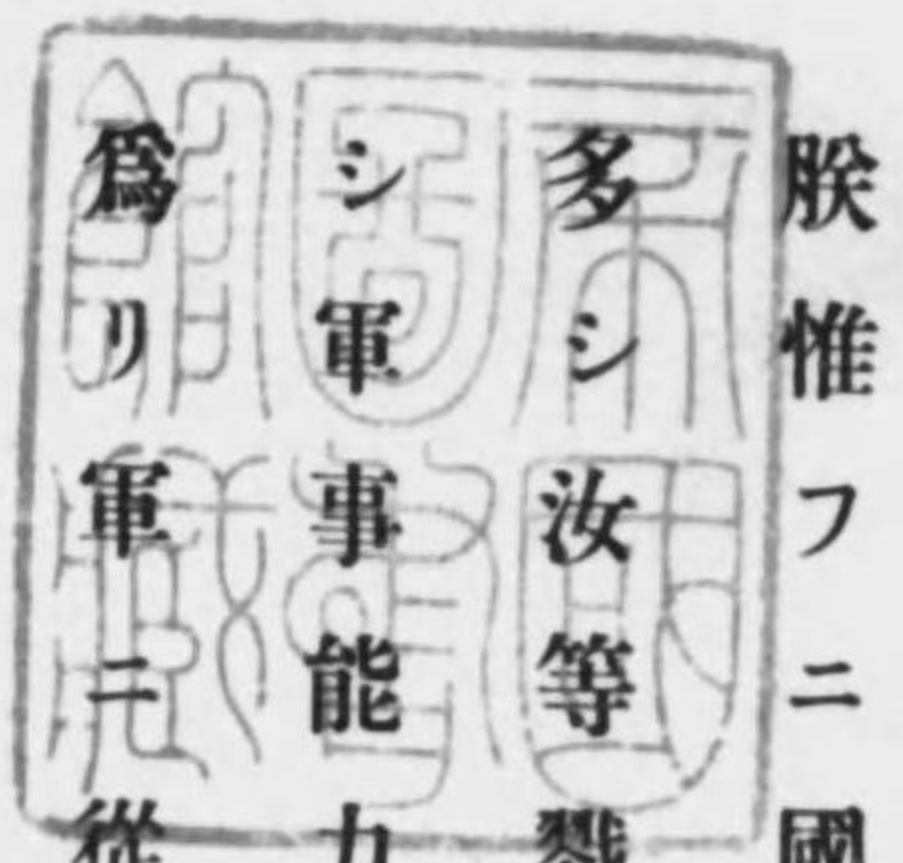 朕惟フニ國
多シ汝等戮
シ軍事能力
爲リ軍ニ從